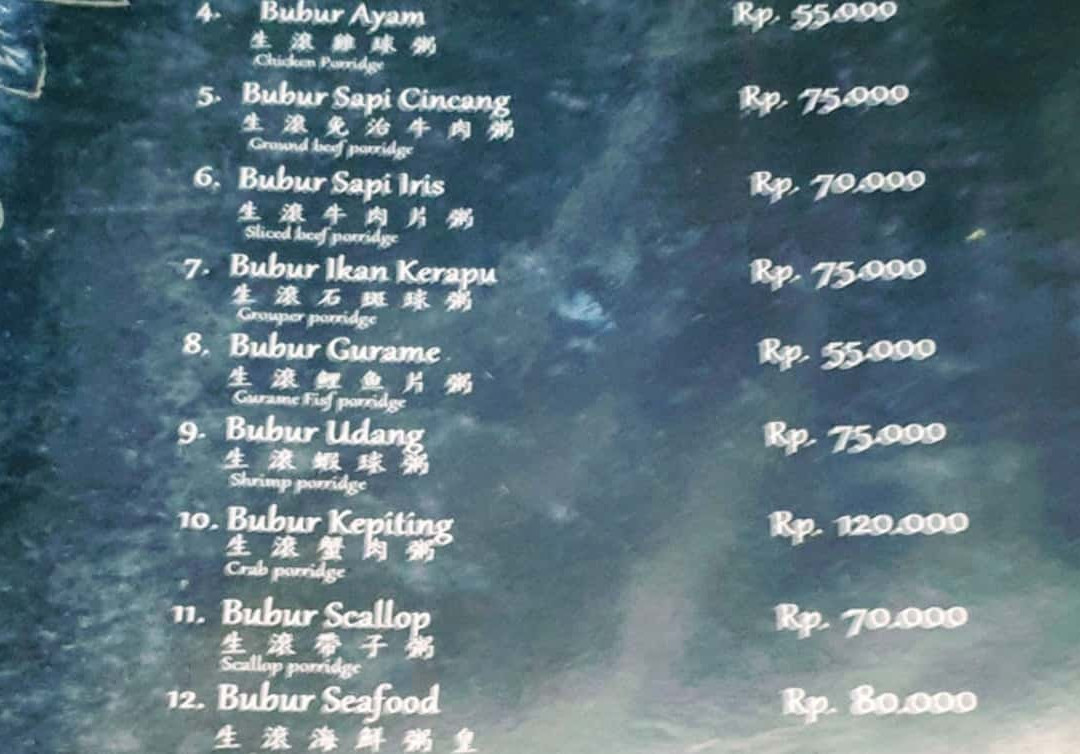 4. Bubur Ayam Rp. 55.000
生滾雞球粥
Chicken Porridge
5. Bubur Sapi Cincang Rp. 75.000
生滾免治牛肉粥
Ground beef porridge
6. Bubur Sapi Iris Rp. 70.000
生滾牛肉片粥
Sliced beef porridge
7. Bubur Ikan Kerapu Rp. 75.000
生滾石斑球粥
Grouper porridge
8. Bubur Gurame Rp. 55.000
生滾鯉魚片粥
Gurame Fisf porridge
9. Bubur Udang Rp. 75.000
生滾蝦球粥
Shrimp porridge
10. Bubur Kepiting Rp. 120.000
生滾蟹肉粥
Crab porridge
11. Bubur Scallop Rp. 70.000
生滾帶子粥
Scallop porridge
12. Bubur Seafood Rp. 80.000
生滾海鮮粥皇